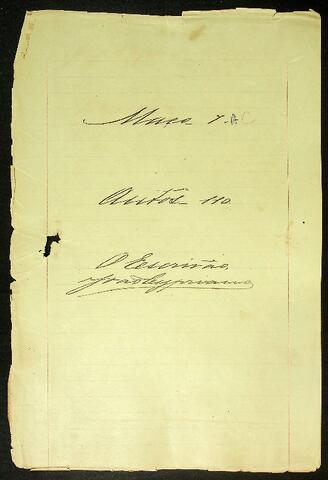 Maço 7. AC
Autos 110
O Escrivão,